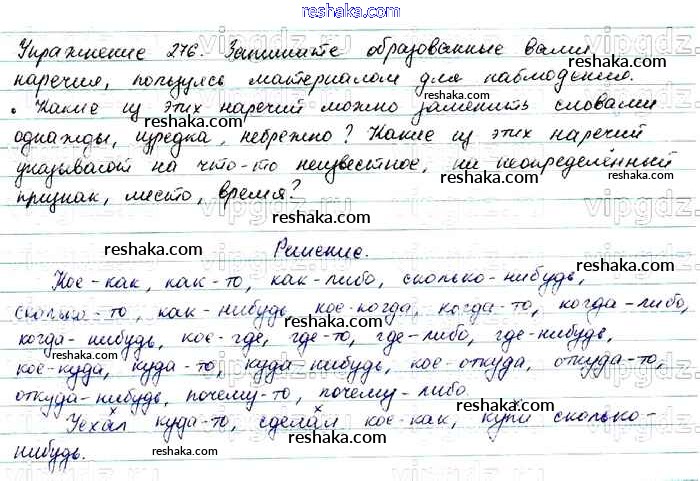 reshaka.com
Упражнение 276. Запишите образованные вами
наречия, пользуясь материалом для наблюдения.
• Какие из этих наречий можно заменить словами
однажды, изредка, небрежно? Какие из этих наречий
указывают на что-то неизвестное, на неопределённый
признак, место, время?
Решение.
Кое-как, как-то, как-либо, сколько-нибудь,
сколько-то, как-нибудь, кое-когда, когда-то, когда-либо,
когда-нибудь, кое-где, где-то, где-либо, где-нибудь,
кое-куда, куда-то, куда-нибудь, кое-откуда, откуда-то,
откуда-нибудь, почему-то, почему-либо.
Уехал куда-то, сделал кое-как, купи сколько-
нибудь.